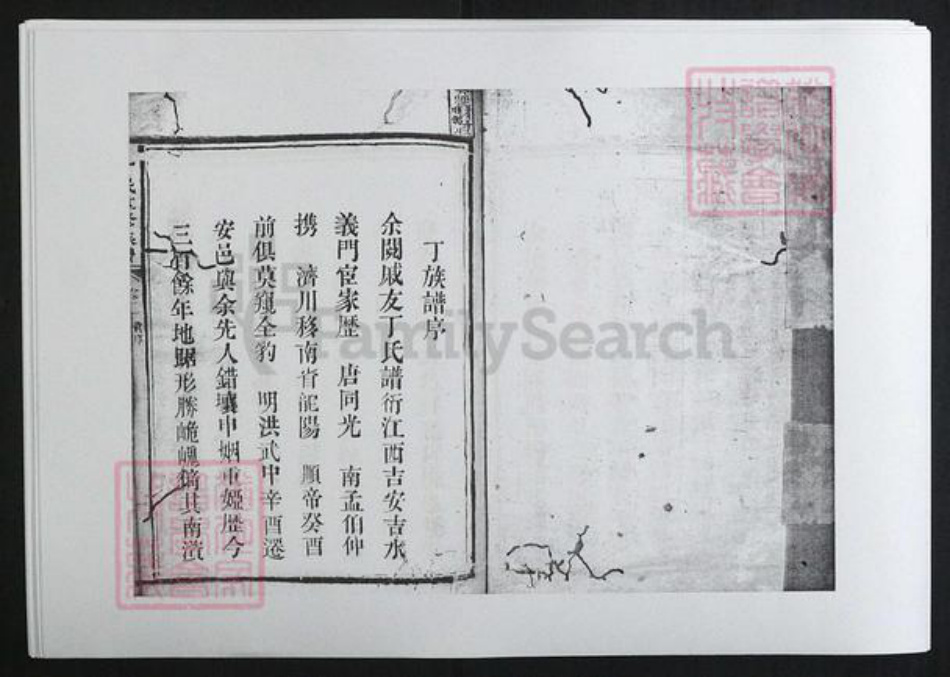 丁族譜序
余閱戚友丁氏譜衍江西吉安吉水
義門宦家歷 唐同光 南孟伯仲
携 濟川移南省龍陽 順帝癸酉
前俱莫窺全豹 明洪武中辛酉遷
安邑與余先人錯壤申姻重婭歷今
三百餘年地踞形勝 其南濱
FamilySearch